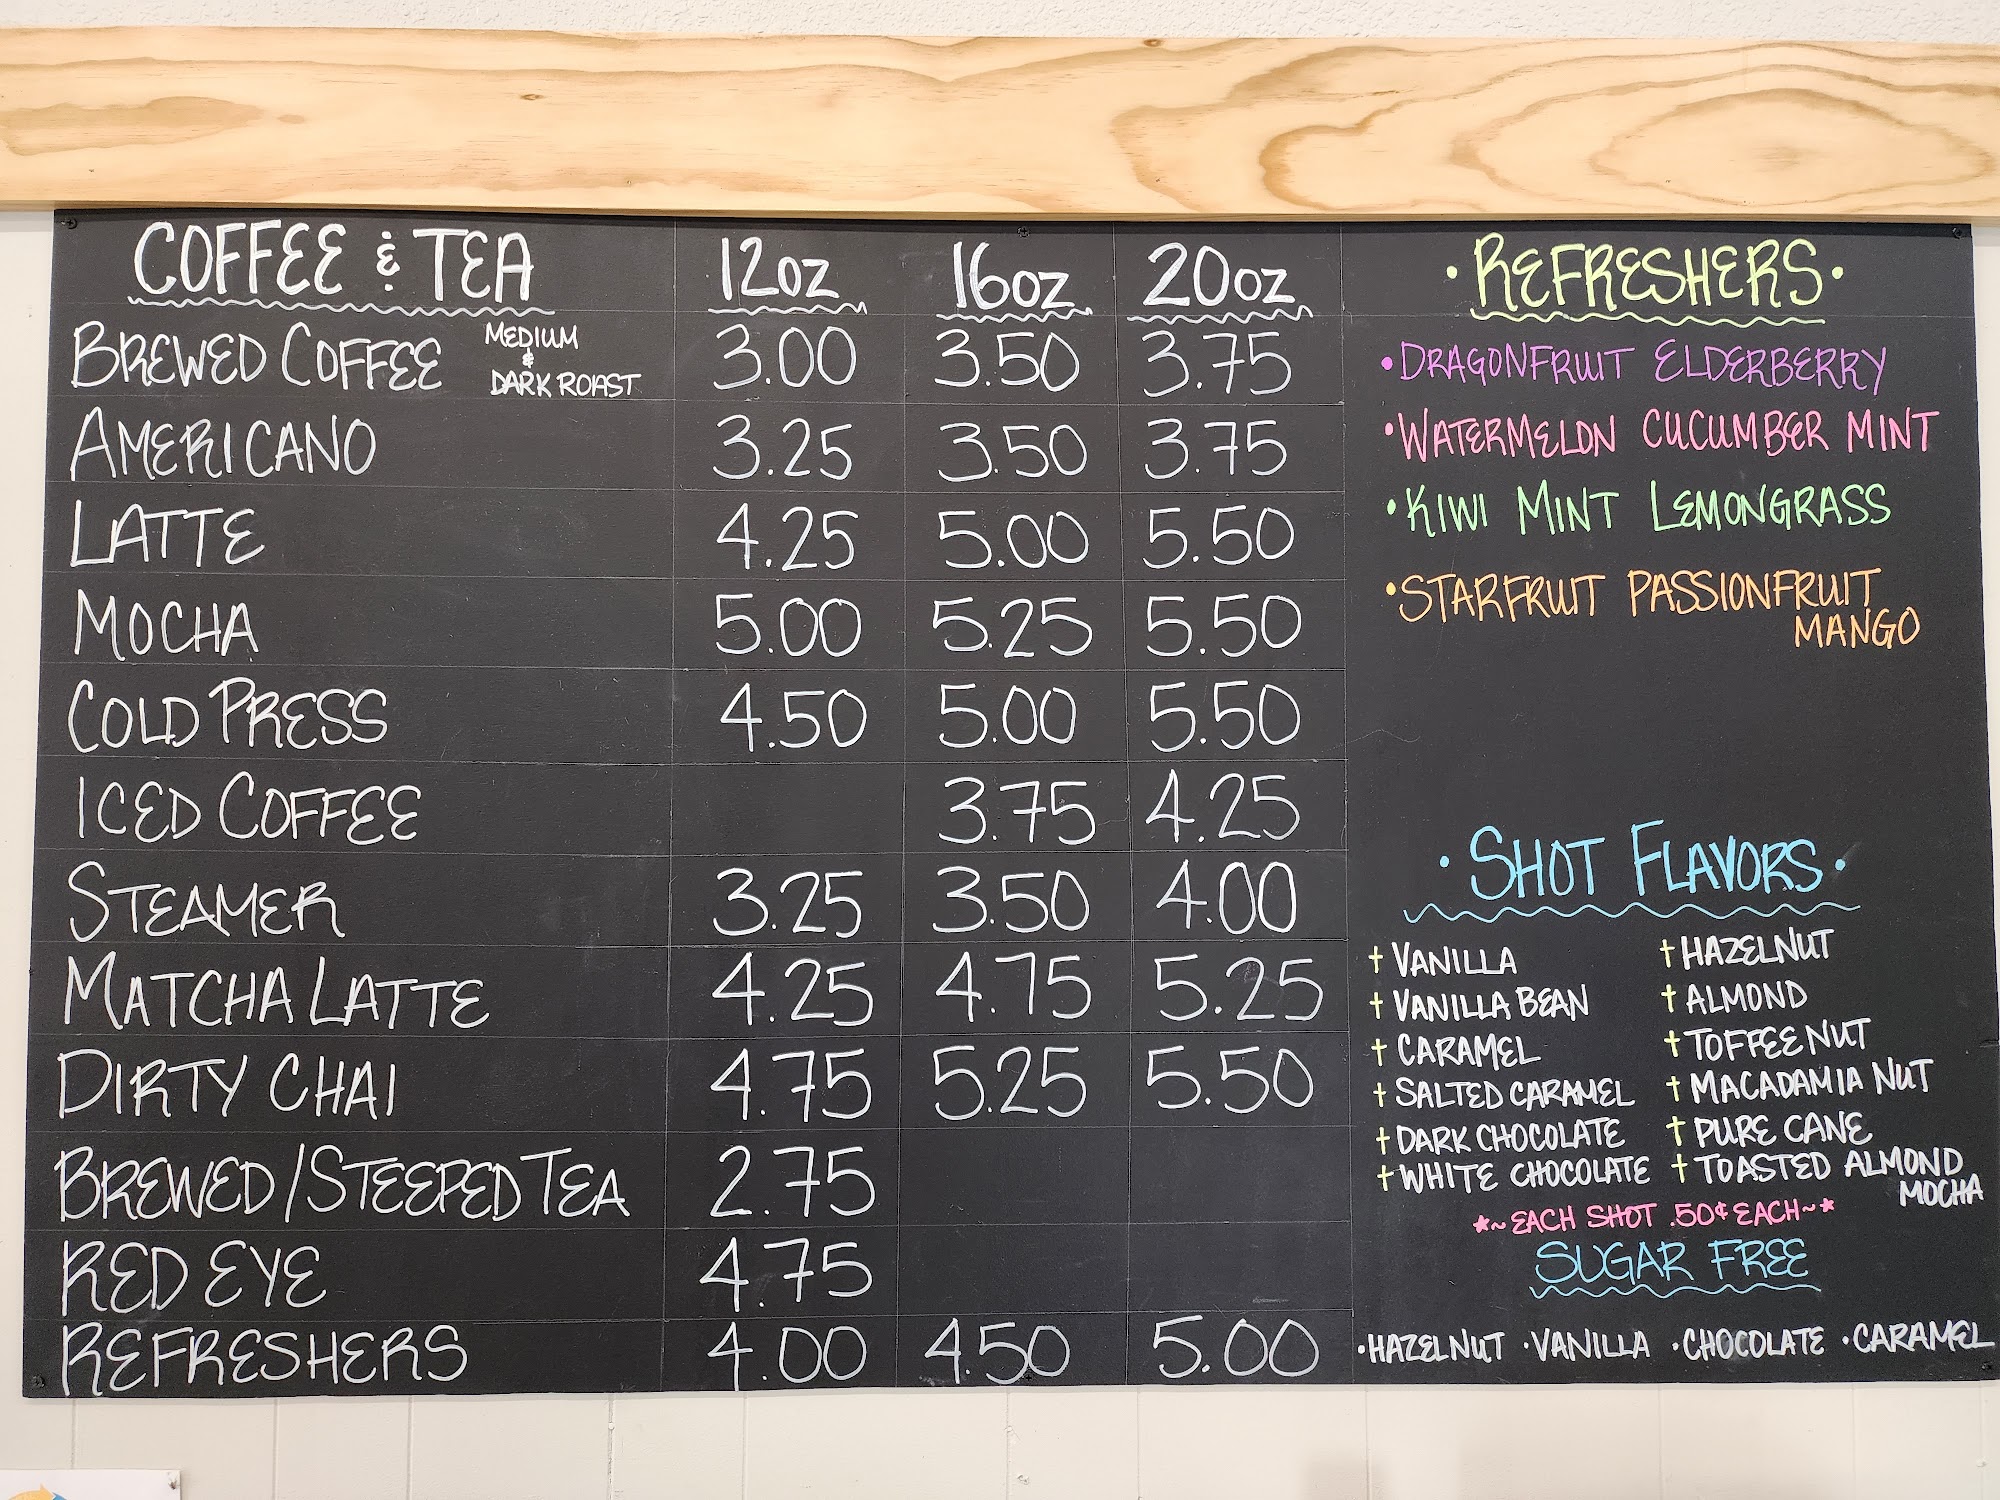 COFFEE & TEA 12oz 16oz 20oz
BREWED COFFEE MEDIUM & DARK ROAST 3.00 3.50 3.75
AMERICANO 3.25 3.50 3.75
LATTE 4.25 5.00 5.50
MOCHA 5.00 5.25 5.50
COLD PRESS 4.50 5.00 5.50
ICED COFFEE 3.75 4.25
STEAMER 3.25 3.50 4.00
MATCHA LATTE 4.25 4.75 5.25
DIRTY CHAI 4.75 5.25 5.50
BREWED/STEEPED TEA 2.75
RED EYE 4.75
REFRESHERS 4.00 4.50 5.00
• REFRESHERS •
• DRAGONFRUIT ELDERBERRY
• WATERMELON CUCUMBER MINT
• KIWI MINT LEMONGRASS
• STARFRUIT PASSIONFRUIT
MANGO
• SHOT FLAVORS •
† VANILLA † HAZELNUT
† VANILLA BEAN † ALMOND
† CARAMEL † TOFFEE NUT
† SALTED CARAMEL † MACADAMIA NUT
† DARK CHOCOLATE † PURE CANE
† WHITE CHOCOLATE † TOASTED ALMOND
MOCHA
*~EACH SHOT .50¢ EACH~*
SUGAR FREE
• HAZELNUT • VANILLA • CHOCOLATE • CARAMEL